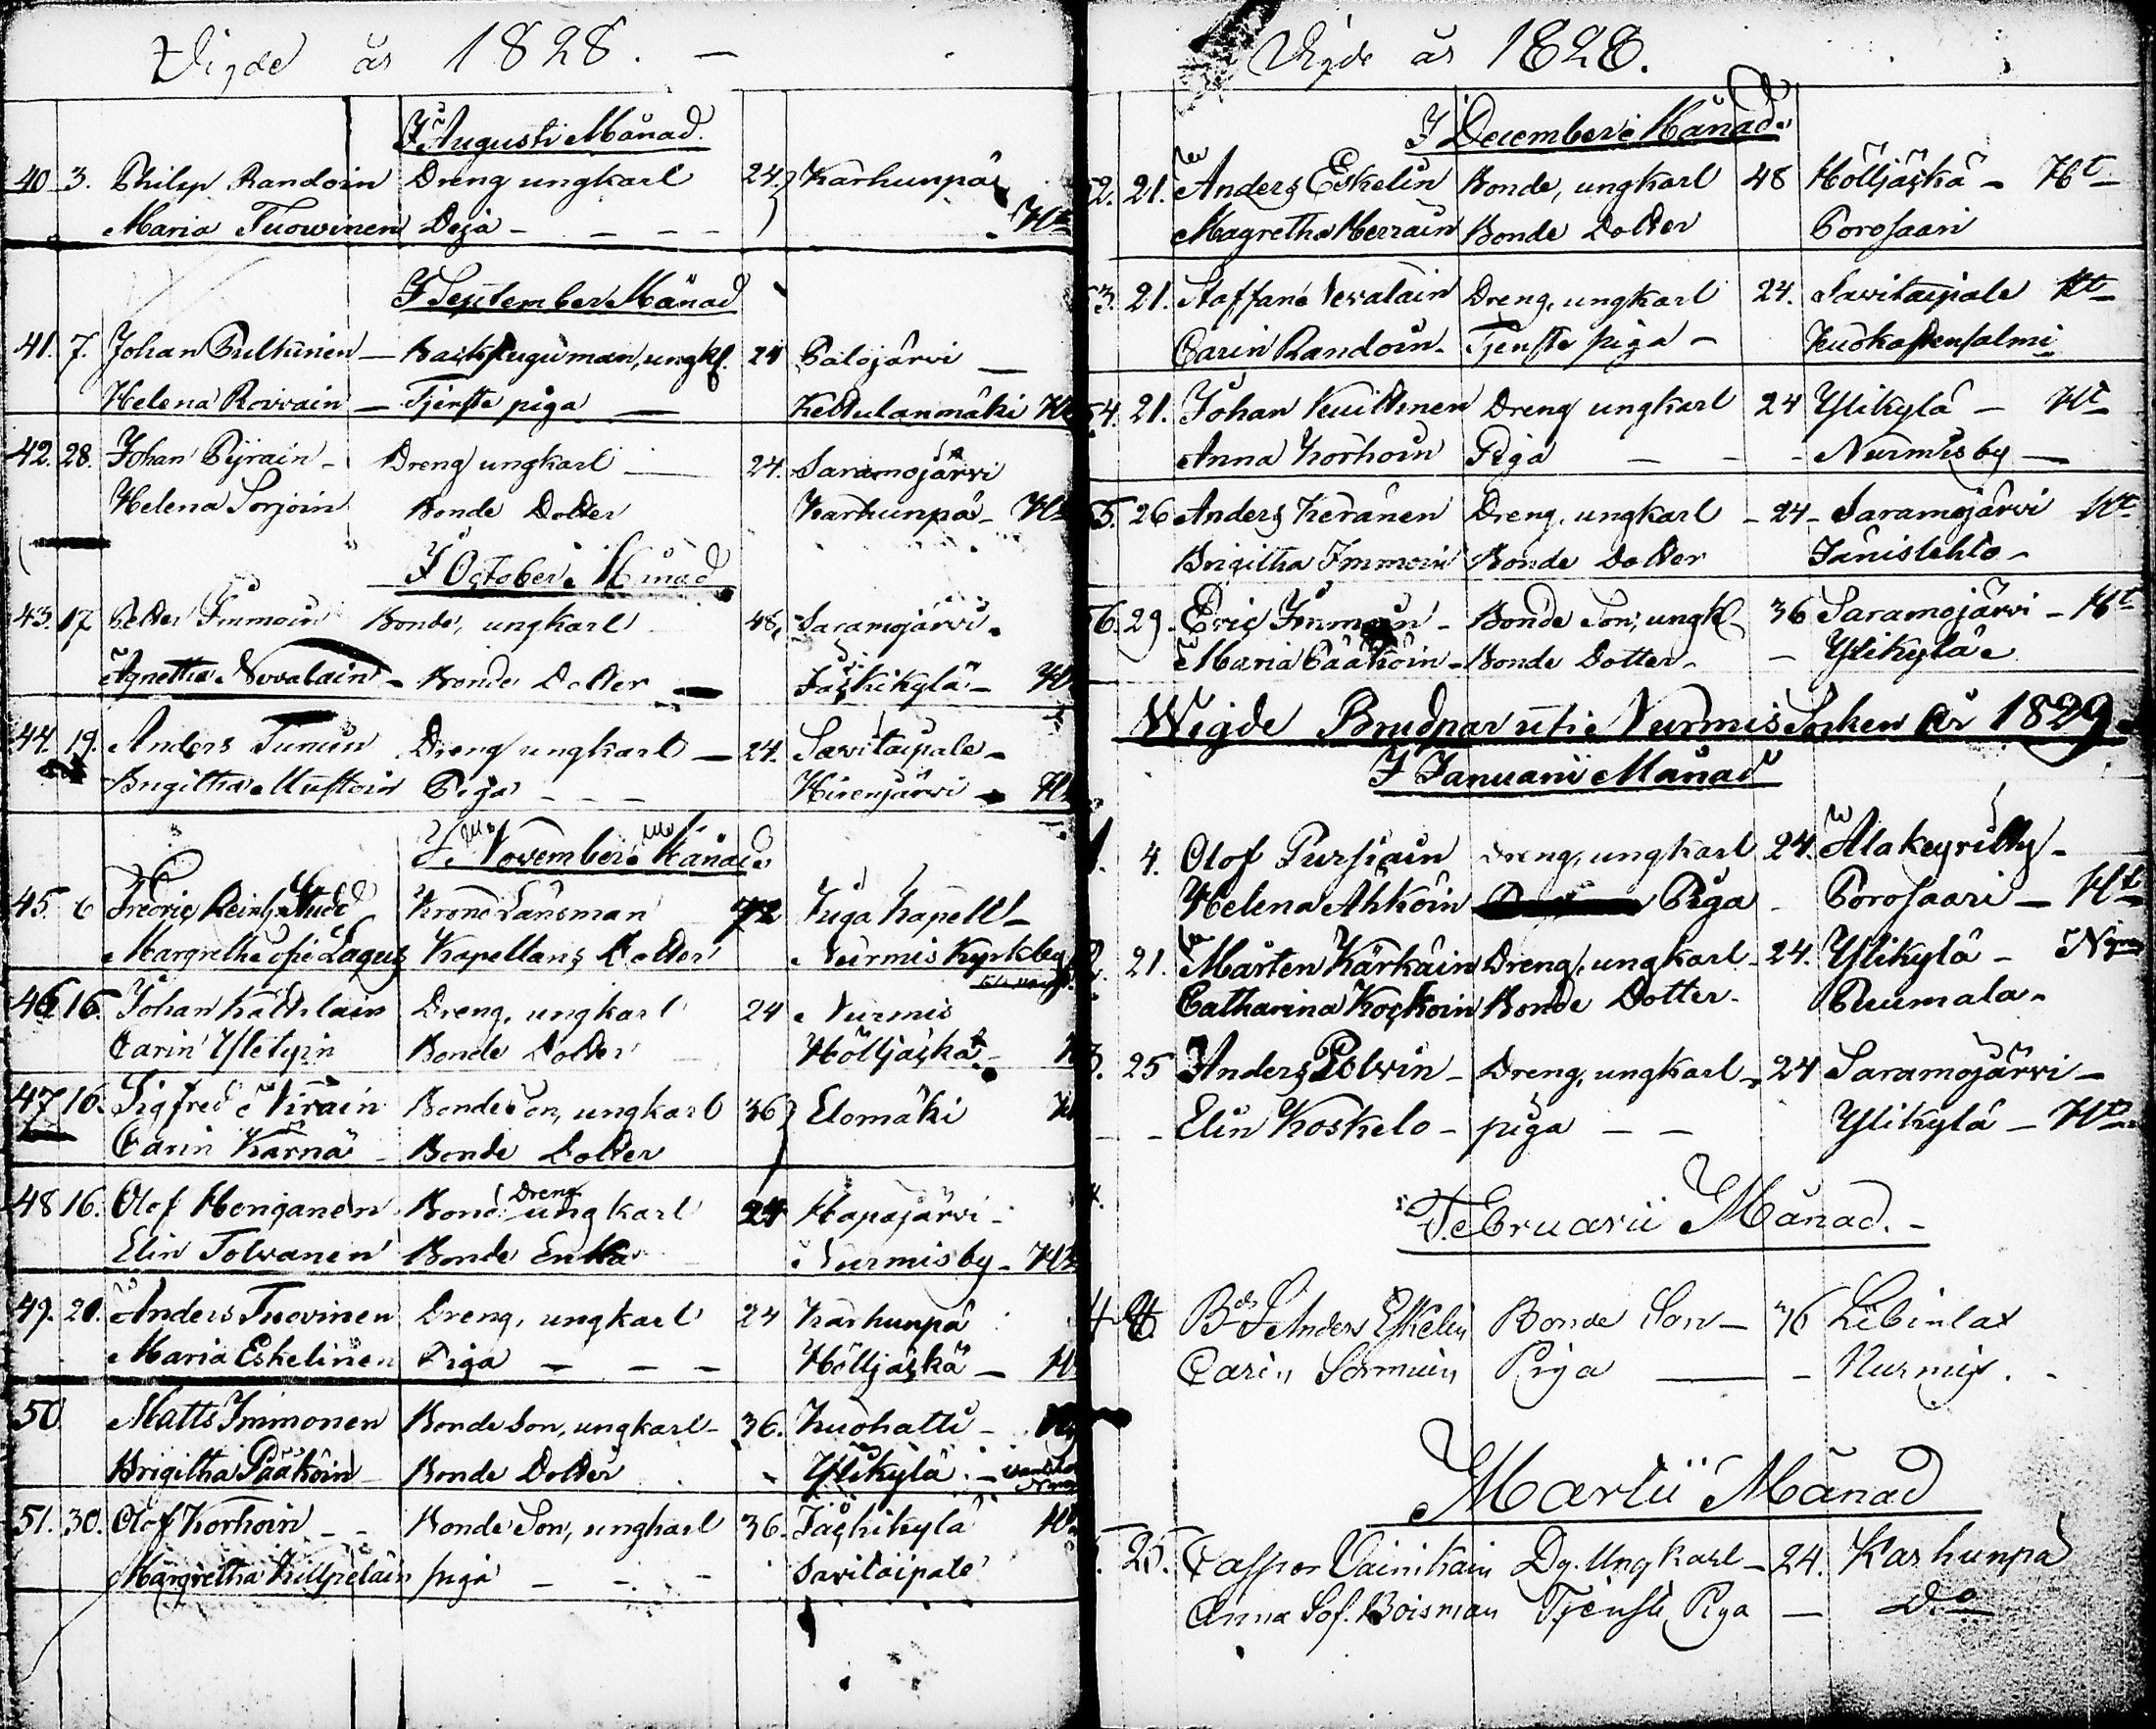 Vigde år 1828. –
I Augusti Månad.
40 3. Philip Randoin Dreng ungkarl 24. Karhunpä
Maria Tuowinen Deja - - - - Ht
I September Månad
41. 7. Johan Pultinen — ungk. 24 Palojärvi —
Helena Rovvain — Tjenste piga — Keldulanmäki
42. 28. Johan Pyrain - Dreng ungkarl — 24. Saramojärvi
Helena Sorjoin Bonde Dotter Karhunpä -
I October Månad
43. 17 Petter Immoin Bonde, ungkarl 48. Saramojärvi.
Agnetha Nevalain - Bonde Dotter — Jäskikylä -
44. 19. Anders Turuin Dreng ungkarl — 24. Savitaipale -
Brigitha Mustoin Piga - - - Hirenjärvi -
I November Månad
45. 6 Fredric Reinh. Krono Länsman 72 Juga Kapell -
Margretha Lagus Kapellans Dotter Nurmis Kyrkby
46 16. Johan Dreng, ungkarl 24 Nurmis
Carin Bonde Dotter Höljäskä -
47 16. Sigfred Bonde Son, ungkarl 36 Elomäki
Carin Kärnä - Bonde Dotter
48 16. Olof Honganen Bond Dreng ungkarl 24 Hapajärvi -
Elin Tolvanen Bonde Enka Nurmisby - Ht
49. 20. Anders Tuovinen Dreng, ungkarl 24 Karhunpä
Maria Eskelinen Piga — — — Höljäskä —
50 Matts Immonen Bonde Son, ungkarl - 36. Kuohatti -
Brigitha Pääköin Bonde Dotter Ylikylä. -
51. 30. Olof Korhoin - - Bonde Son, ungkarl 36. Jäskikylä
Margretha Kilpeläin piga - - - Savitaipale
Vigde år 1828.
I December Månad.
52. 21. Anders Eskelin Bonde, ungkarl 48 Höljäskä - Ht
Magretha Merrain Bonde Dotter Porosaari
53. 21. Staffan Nevalain Dreng, ungkarl 24. Savitaipale Ht
Carin Randoin. Tjenste piga -
54. 21. Johan Kuittinen Dreng ungkarl 24 Ylikylä — Ht
Anna Korhoin Piga - - - Nurmisby —
55. 26 Anders Keränen Dreng, ungkarl - 24 - Saramojärvi Ht
Brigitha Immoin Bonde Dotter Jänislehto -
56. 29. Eric Immoin - Bonde Son, ungk 36 Saramojärvi - Ht
Maria Pääköin - Bonde Dotter - - Ylikylä
Wigde Brudpar uti Nurmis Socken År 1829.
I Januarii Månad
1. 4. Olof Pursiain Dreng, ungkarl 24. Alakeyritty -
Helena Ahkoin Piga - Porosaari — Ht
2. 21. Mårten Kärkäin Dreng, ungkarl - 24. Ylikylä -
Catharina Koskoin Bonde Dotter - Puumala -
3. 25 Anders Polvin - Dreng, ungkarl - 24 Saramojärvi —
Elin Koskelo - piga — — Ylikylä — Ht
Februarii Månad. -
4 Bds S Anders Eskelin Bonde Son — 36 Libinlax
Carin Sormuin Piga — - Nurmis. -
Martii Månad
25. Casper Vainikain Dg. Ungkarl - 24. Karhunpä
Anna Sof. Boisman Tjenste Piga — Do